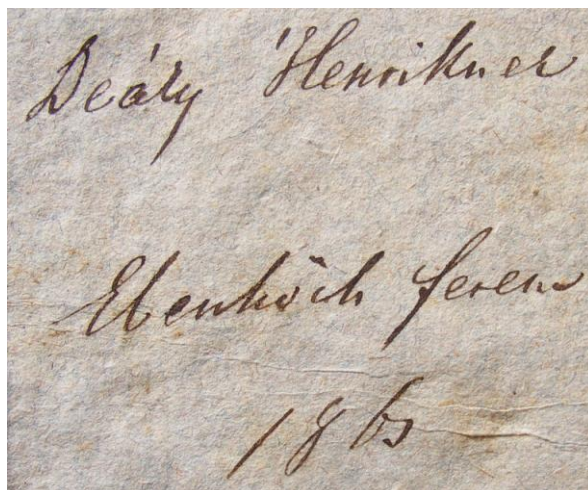 Deáky Henriknek
Ebenhöch ferenc
1865